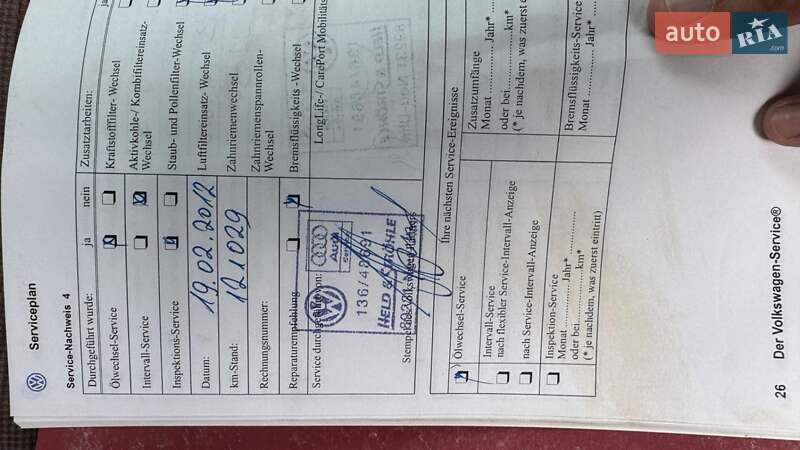 Serviceplan
Service-Nachweis 4
Durchgeführt wurde: ja nein
Ölwechsel-Service
Intervall-Service
Inspektions-Service
Datum: 19.02.2012
km-Stand: 121029
Rechnungsnummer:
Reparaturempfehlung
Service durchgeführt von:
Audi
Service
136/49691
HELD & STRÖHLE
Zusatzarbeiten:
Kraftstofffilter-Wechsel
Aktivkohle-/ Kombifiltereinsatz-
Wechsel
Staub- und Pollenfilter-Wechsel
Luftfiltereinsatz-Wechsel
Zahnriemenwechsel
Zahnriemenspannrollen-
Wechsel
Bremsflüssigkeits -Wechsel
LongLife-/ CarePort Mobilitäts
Ihre nächsten Service-Ereignisse
Ölwechsel-Service
Intervall-Service
nach flexibler Service-Intervall-Anzeige
nach Service-Intervall-Anzeige
Inspektion-Service
Monat ............. Jahr*
oder bei ............. km*
(* je nachdem, was zuerst eintritt)
Zusatzumfänge
Monat ............. Jahr*
oder bei ............. km*
(* je nachdem, was zuerst e
Bremsflüssigkeits-Service
Monat ............. Jahr*
26 Der Volkswagen-Service®
auto RIA
.com